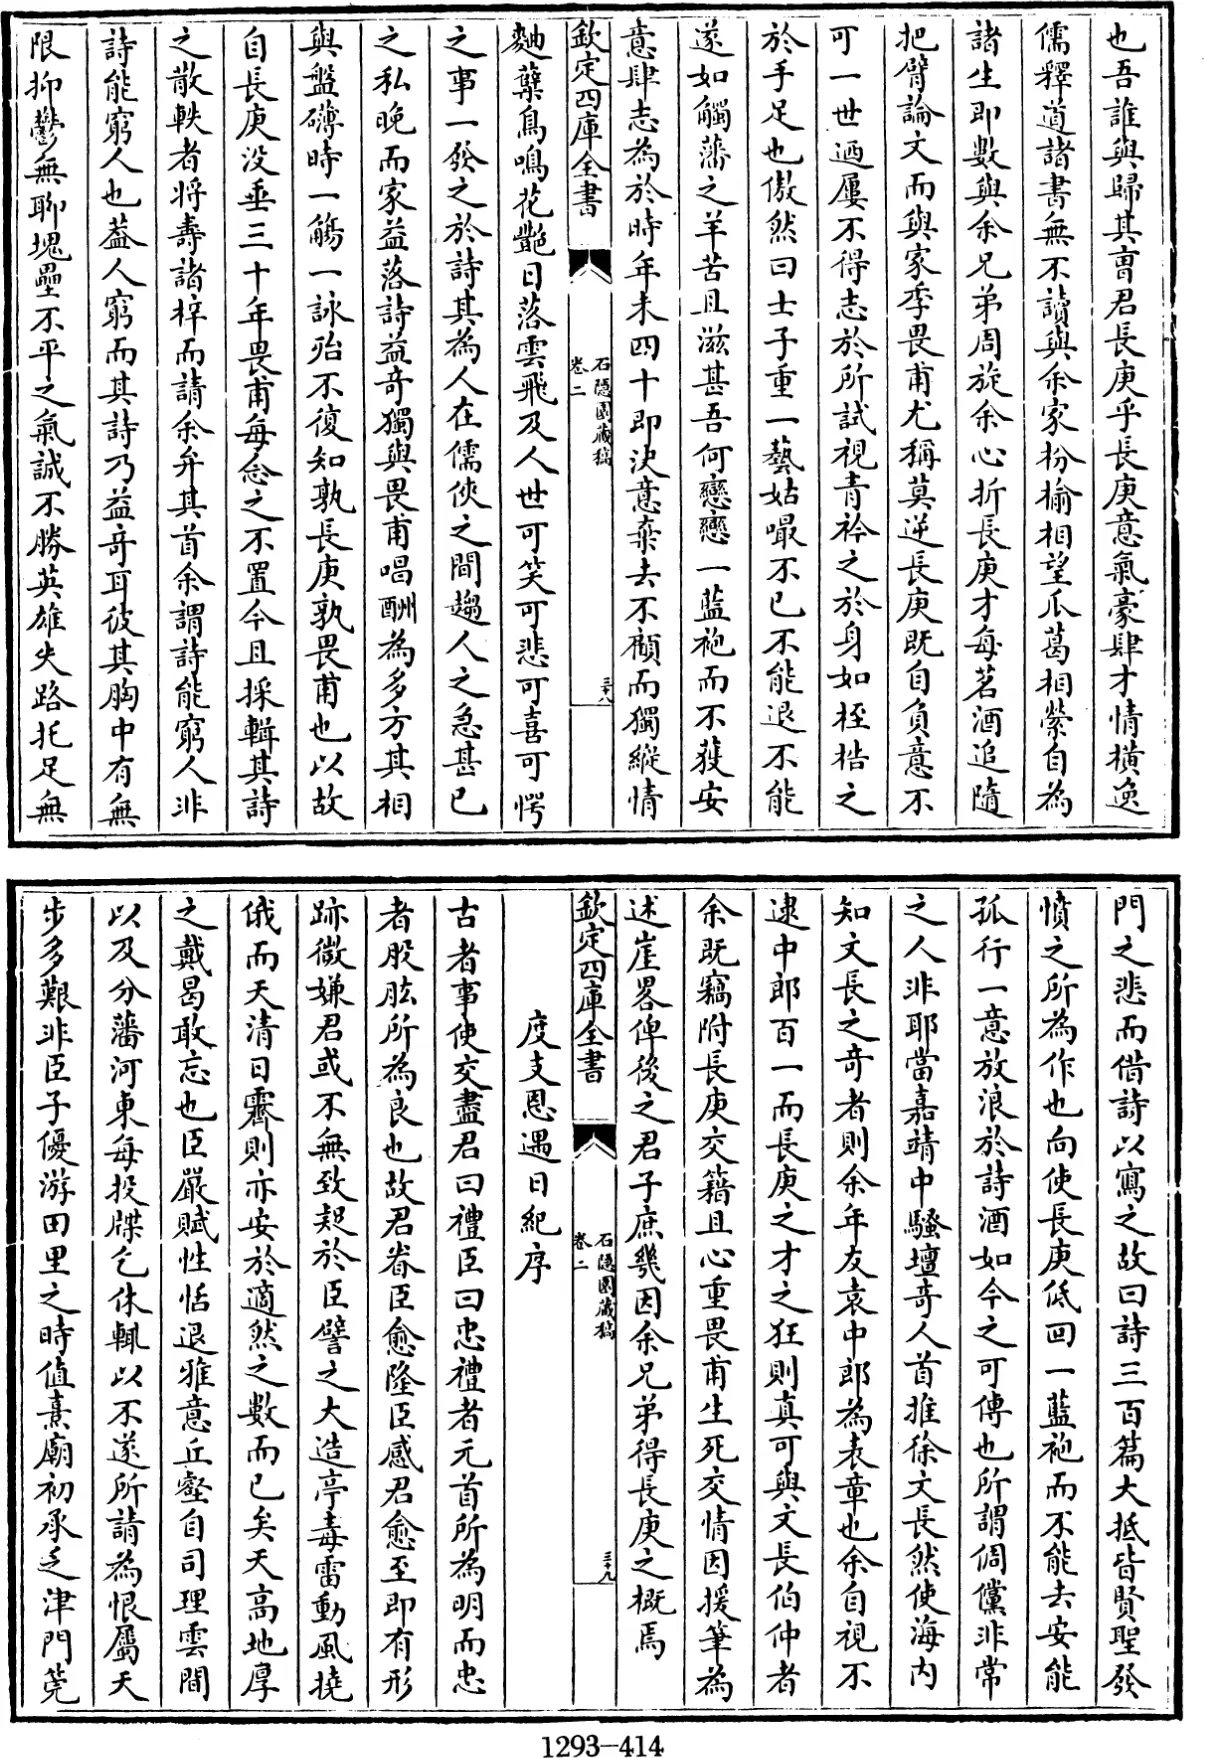 也吾誰與歸其曺君長庚乎長庚意氣豪肆才情橫逸
儒釋道諸書無不讀與余家枌榆相望瓜葛相縈自為
諸生即數與余兄弟周旋余心折長庚才每茗酒追隨
把臂論文而與家季畏甫尤稱莫逆長庚既自負意不
可一世迺屢不得志於所試視青衿之於身如桎梏之
於手足也傲然曰士子重一藝姑嘬不已不能退不能
遂如觸藩之羊苦且滋甚吾何戀戀一藍袍而不獲安
意肆志為於時年未四十即決意棄去不顧而獨縱情
欽定四庫全書
石隱園藏稿
卷二
三十八
麯櫱鳥鳴花艷日落雲飛及人世可笑可悲可喜可愕
之事一發之於詩其為人在儒俠之間趨人之急甚已
之私晚而家益落詩益奇獨與畏甫唱酬為多方其相
與盤礴時一觴一詠殆不復知孰長庚孰畏甫也以故
自長庚没垂三十年畏甫每念之不置今且採輯其詩
之散軼者將壽諸梓而請余弁其首余謂詩能窮人非
詩能窮人也葢人窮而其詩乃益奇耳彼其胸中有無
限抑鬱無聊塊壘不平之氣誠不勝英雄失路托足無
門之悲而借詩以寫之故曰詩三百篇大抵皆賢聖發
憤之所為作也向使長庚低回一藍袍而不能去安能
孤行一意放浪於詩酒如今之可傳也所謂倜儻非常
之人非耶當嘉靖中騷壇奇人首推徐文長然使海内
知文長之奇者則余年友袁中郎為表章也余自視不
逮中郎百一而長庚之才之狂則真可與文長伯仲者
余既竊附長庚交籍且心重畏甫生死交情因援筆為
述崖畧俾後之君子庶幾因余兄弟得長庚之概焉
欽定四庫全書
石隱園藏稿
卷二
三十九
度支恩遇日紀序
古者事使交盡君曰禮臣曰忠禮者元首所為明而忠
者股肱所為良也故君眷臣愈隆臣感君愈至即有形
跡微嫌君或不無致疑於臣譬之大造亭毒雷動風撓
俄而天清日霽則亦安於適然之數而已矣天高地厚
之戴曷敢忘也臣嚴賦性恬退雅意丘壑自司理雲間
以及分藩河東每投牒乞休輒以不遂所請為恨屬天
步多艱非臣子優游田里之時值熹廟初承乏津門莞
1293—414